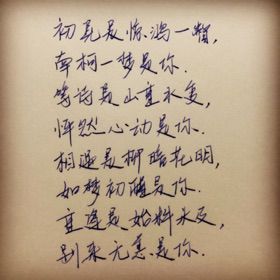 初见是惊鸿一瞥，
南柯一梦是你．
等诗是山重水复，
怦然心动是你．
相遇是柳暗花明，
如梦初醒是你．
重逢是始料未及，
别来无恙是你．